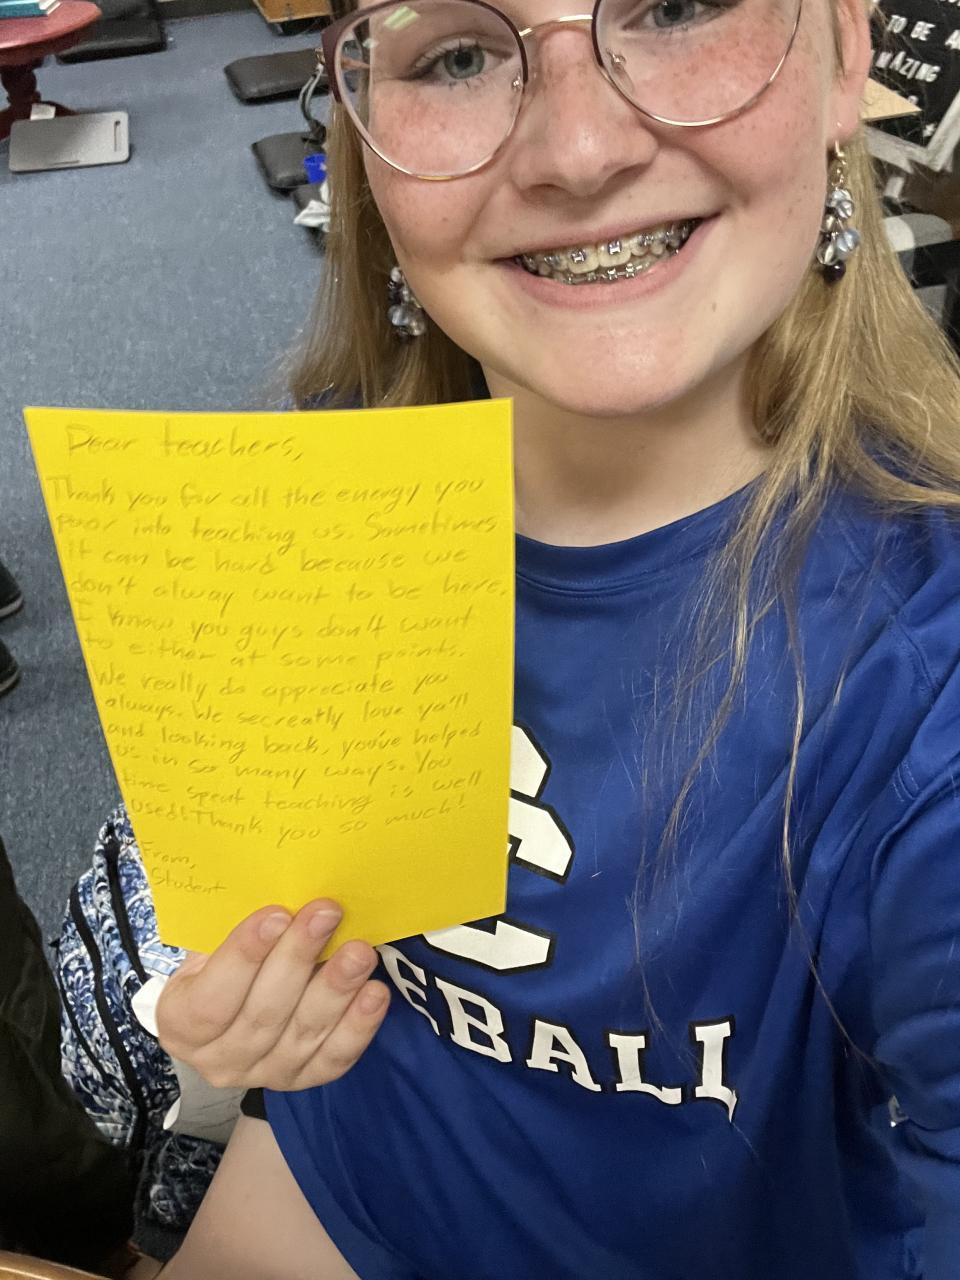 TO BE
AMAZING
Dear teachers,
Thank you for all the energy you
poor into teaching us. Sometimes
it can be hard because we
don't alway want to be here.
I know you guys don't want
to either at some points.
We really do appreciate you
always. We secreatly love ya'll
and looking back, you've helped
us in so many ways. You
time spent teaching is well
used! Thank you so much!
From,
Student
EBALL